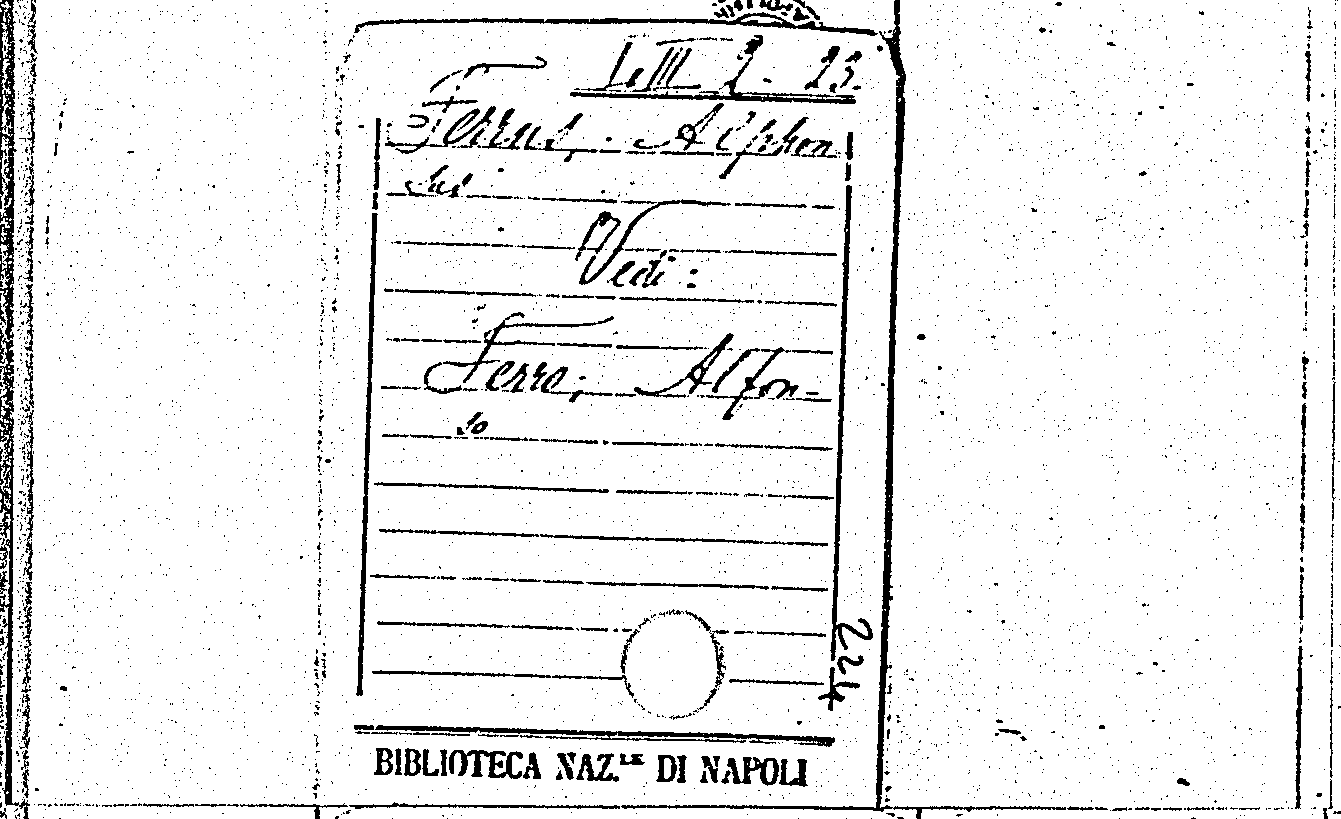 L. III 2. 23.
Ferrus, Alphon
sus
Vedi:
Ferro, Alfon-
so
224
BIBLIOTECA NAZ.LE DI NAPOLI